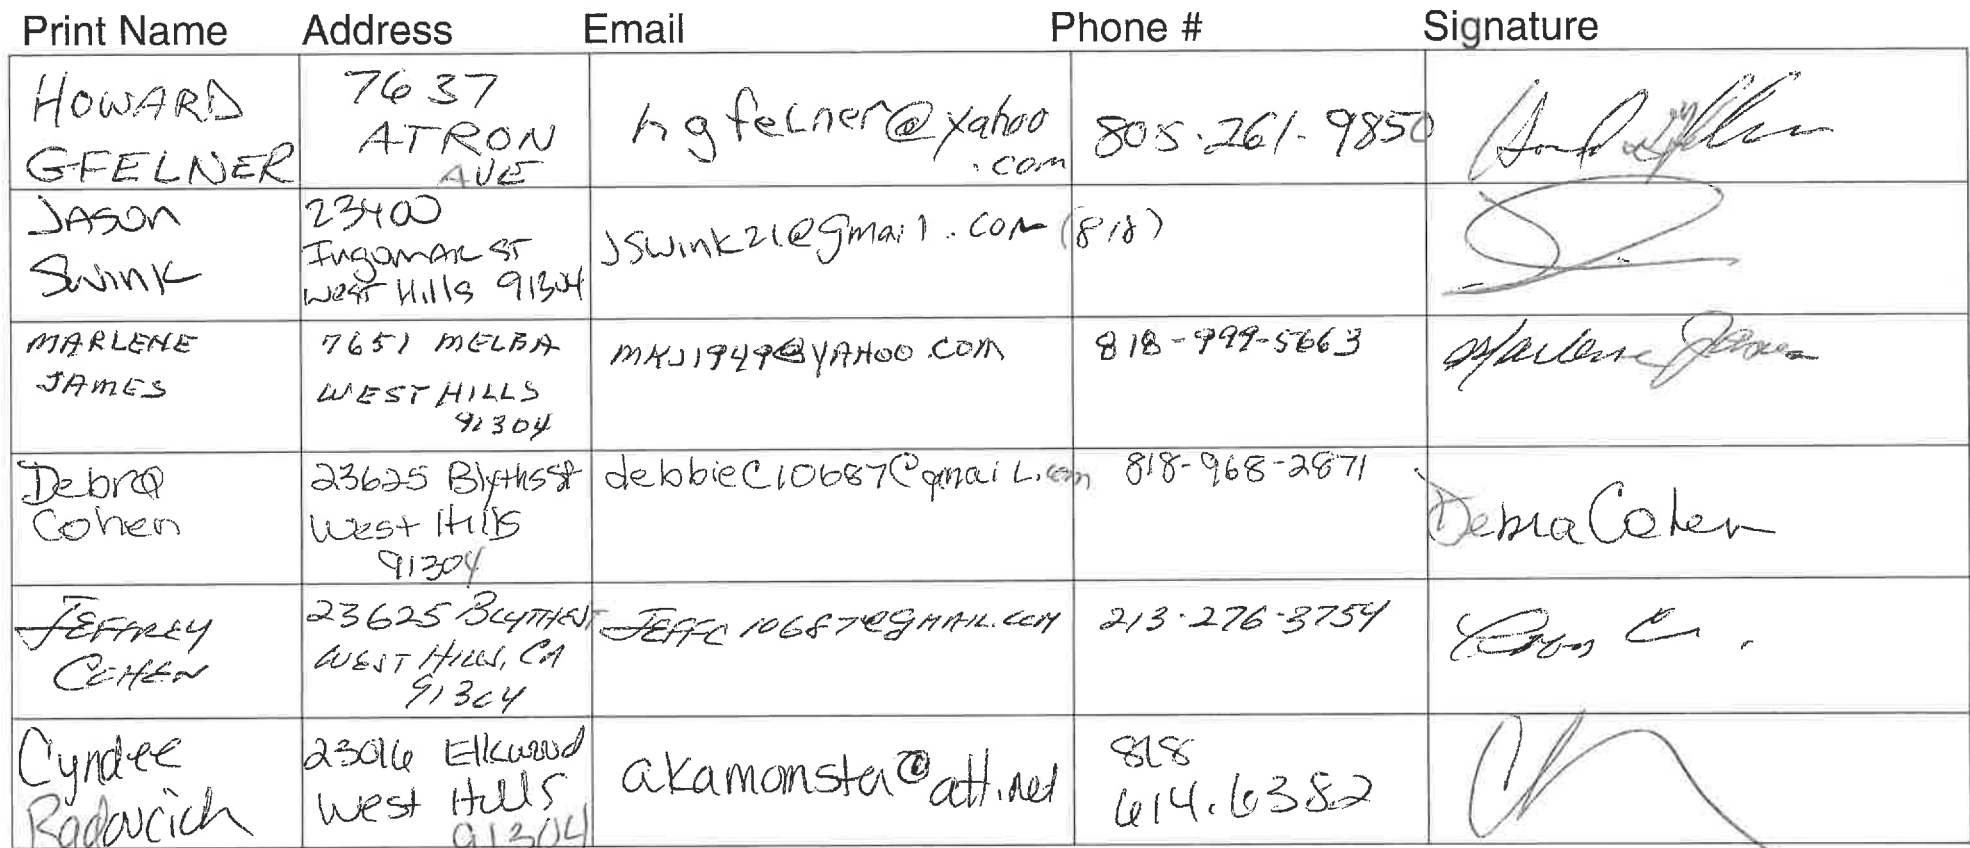 Print Name Address Email Phone # Signature
HOWARD
GFELNER
7637
ATRON
AVE
hgfelner@yahoo
.com
805.261.9850
JASON
Swink
23400
Ingomar ST
West Hills 91304
jswink21@gmail.com
(818)
MARLENE
JAMES
7651 MELBA
WEST HILLS
91304
MKJ1949@YAHOO.COM
818-999-5663
Marlene James
Debra
Cohen
23625 Blythe St
West Hills
91304
debbieC10687@gmail.com
818-968-2871
Debra Cohen
JEFFREY
COHEN
23625 BLYTHE ST
WEST HILLS, CA
91304
JEFFC10687@GMAIL.COM
213.276-3754
Cyndee
Radovcich
23016 Elkwood
West Hills
91304
akamomster@att.net
818
614.6352